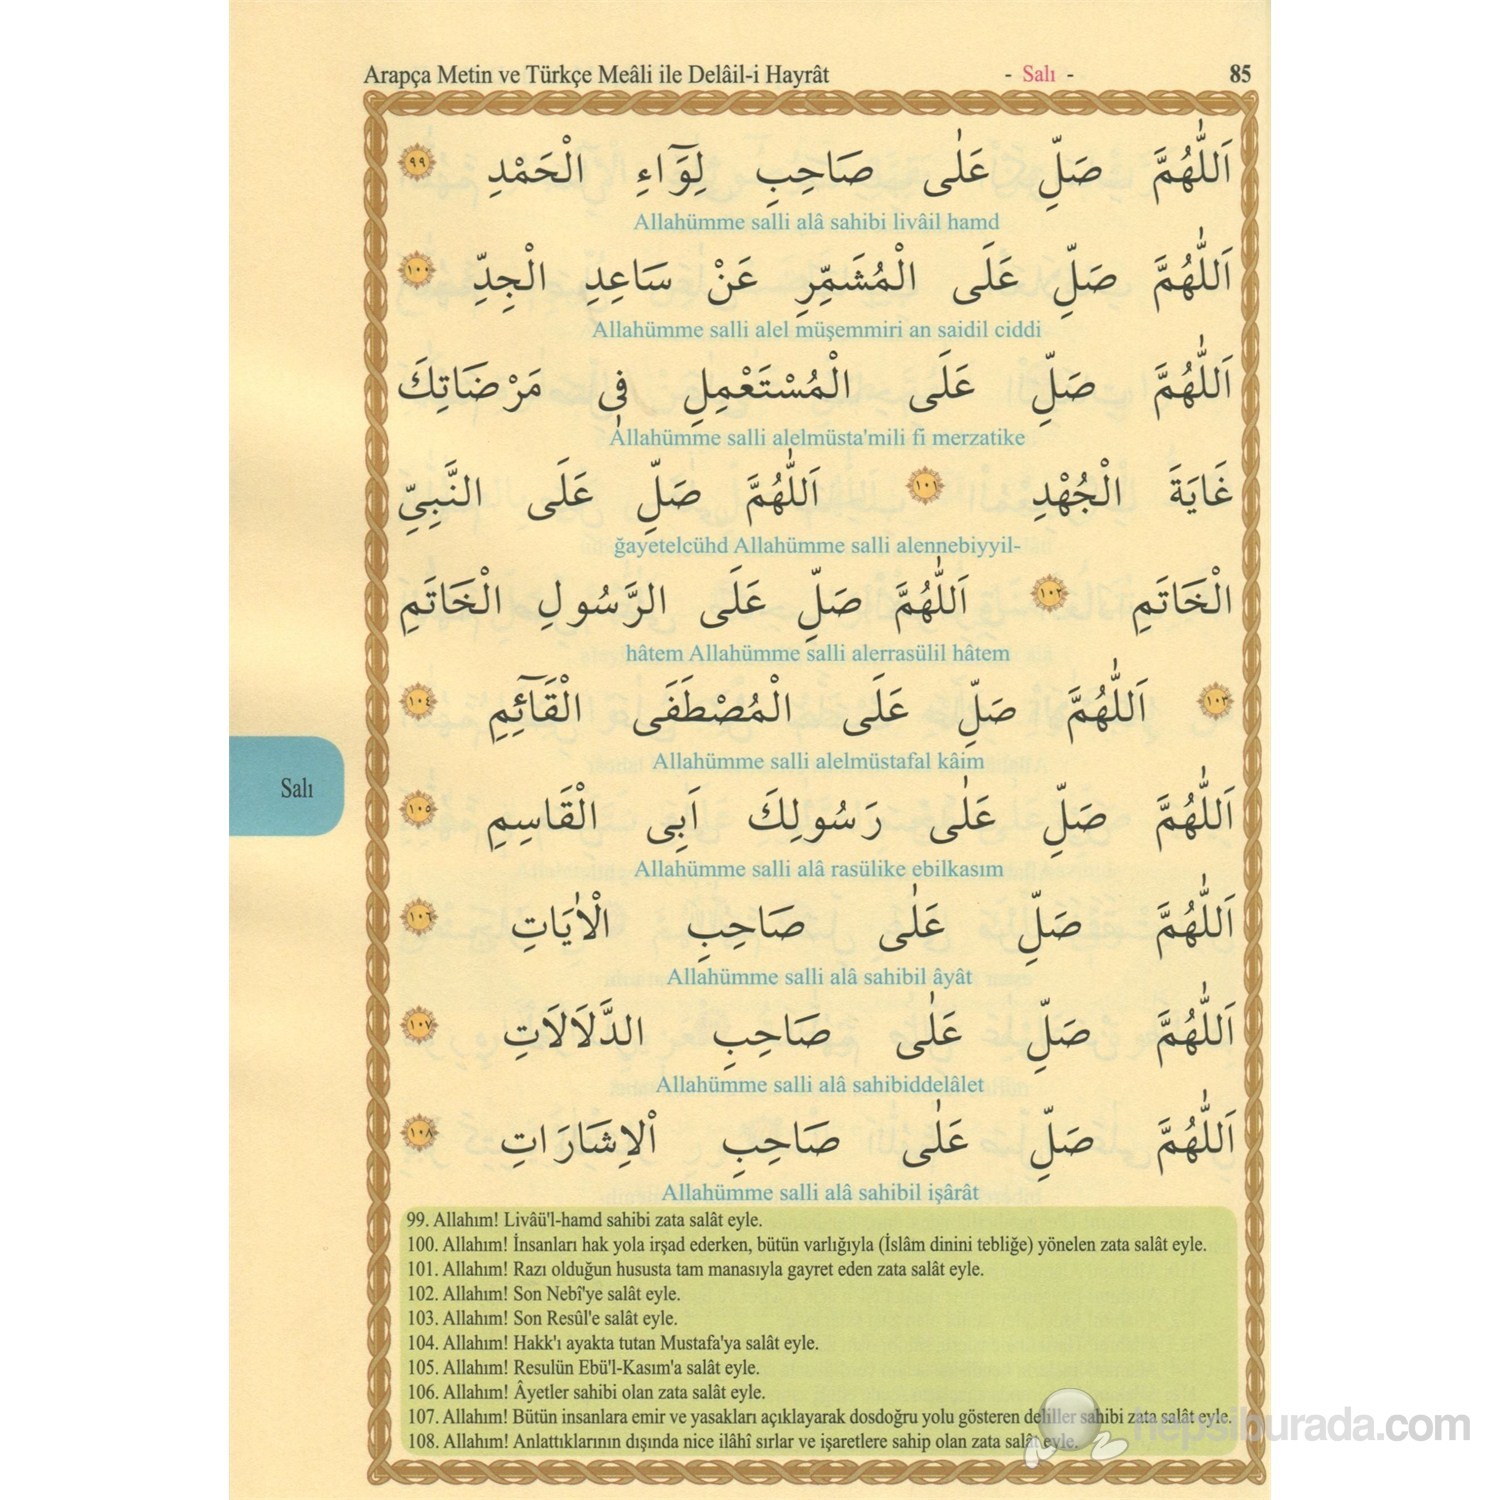 Arapça Metin ve Türkçe Meâli ile Delâil-i Hayrât - Salı - 85
اَللّٰهُمَّ صَلِّ عَلٰى صَاحِبِ لِوَٓاءِ الْحَمْدِ ٩٩
Allahümme salli alâ sahibi livâil hamd
اَللّٰهُمَّ صَلِّ عَلَى الْمُشَمِّرِ عَنْ سَاعِدِ الْجِدِّ ١٠٠
Allahümme salli alel müşemmiri an saidil ciddi
اَللّٰهُمَّ صَلِّ عَلَى الْمُسْتَعْمِلِ فٖى مَرْضَاتِكَ
Allahümme salli alelmüsta'mili fî merzatike
غَايَةَ الْجُهْدِ ١٠١ اَللّٰهُمَّ صَلِّ عَلَى النَّبِىِّ
ğayetelcühd Allahümme salli alennebiyyil-
الْخَاتَمِ ١٠٢ اَللّٰهُمَّ صَلِّ عَلَى الرَّسُولِ الْخَاتَمِ
hâtem Allahümme salli alerrasülil hâtem
١٠٣ اَللّٰهُمَّ صَلِّ عَلَى الْمُصْطَفَى الْقَٓائِمِ ١٠٤
Allahümme salli alelmüstafal kâim
اَللّٰهُمَّ صَلِّ عَلٰى رَسُولِكَ اَبِى الْقَاسِمِ ١٠٥
Allahümme salli alâ rasülike ebilkasım
اَللّٰهُمَّ صَلِّ عَلٰى صَاحِبِ الْاٰيَاتِ ١٠٦
Allahümme salli alâ sahibil âyât
اَللّٰهُمَّ صَلِّ عَلٰى صَاحِبِ الدَّلَالَاتِ ١٠٧
Allahümme salli alâ sahibiddelâlet
اَللّٰهُمَّ صَلِّ عَلٰى صَاحِبِ الْاِشَارَاتِ ١٠٨
Allahümme salli alâ sahibil işârât
Salı
99. Allahım! Livâü'l-hamd sahibi zata salât eyle.
100. Allahım! İnsanları hak yola irşad ederken, bütün varlığıyla (İslâm dinini tebliğe) yönelen zata salât eyle.
101. Allahım! Razı olduğun hususta tam manasıyla gayret eden zata salât eyle.
102. Allahım! Son Nebî'ye salât eyle.
103. Allahım! Son Resûl'e salât eyle.
104. Allahım! Hakk'ı ayakta tutan Mustafa'ya salât eyle.
105. Allahım! Resulün Ebü'l-Kasım'a salât eyle.
106. Allahım! Âyetler sahibi olan zata salât eyle.
107. Allahım! Bütün insanlara emir ve yasakları açıklayarak dosdoğru yolu gösteren deliller sahibi zata salât eyle.
108. Allahım! Anlattıklarının dışında nice ilâhî sırlar ve işaretlere sahip olan zata salât eyle.
hepsiburada.com